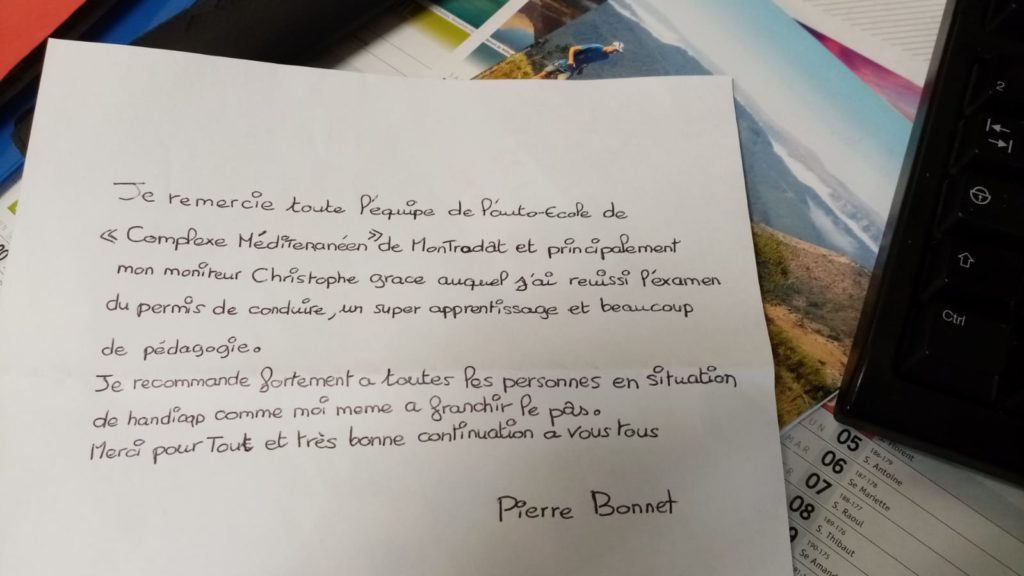 Je remercie toute l'équipe de l'auto-Ecole de
« Complexe Méditerranéen » de Montradat et principalement
mon moniteur Christophe grace auquel j'ai reuissi l'éxamen
du permis de conduire, un super apprentissage et beaucoup
de pédagogie.
Je recommande fortement a toutes les personnes en situation
de handicap comme moi meme a franchir le pas.
Merci pour Tout et très bonne continuation a vous tous
Pierre Bonnet
2
Ctrl
05
186-179
S. Antoine
MAR 06
187-178
Se Mariette
07
188-177
S. Raoul
08
189-176
S. Thibaut
190-175